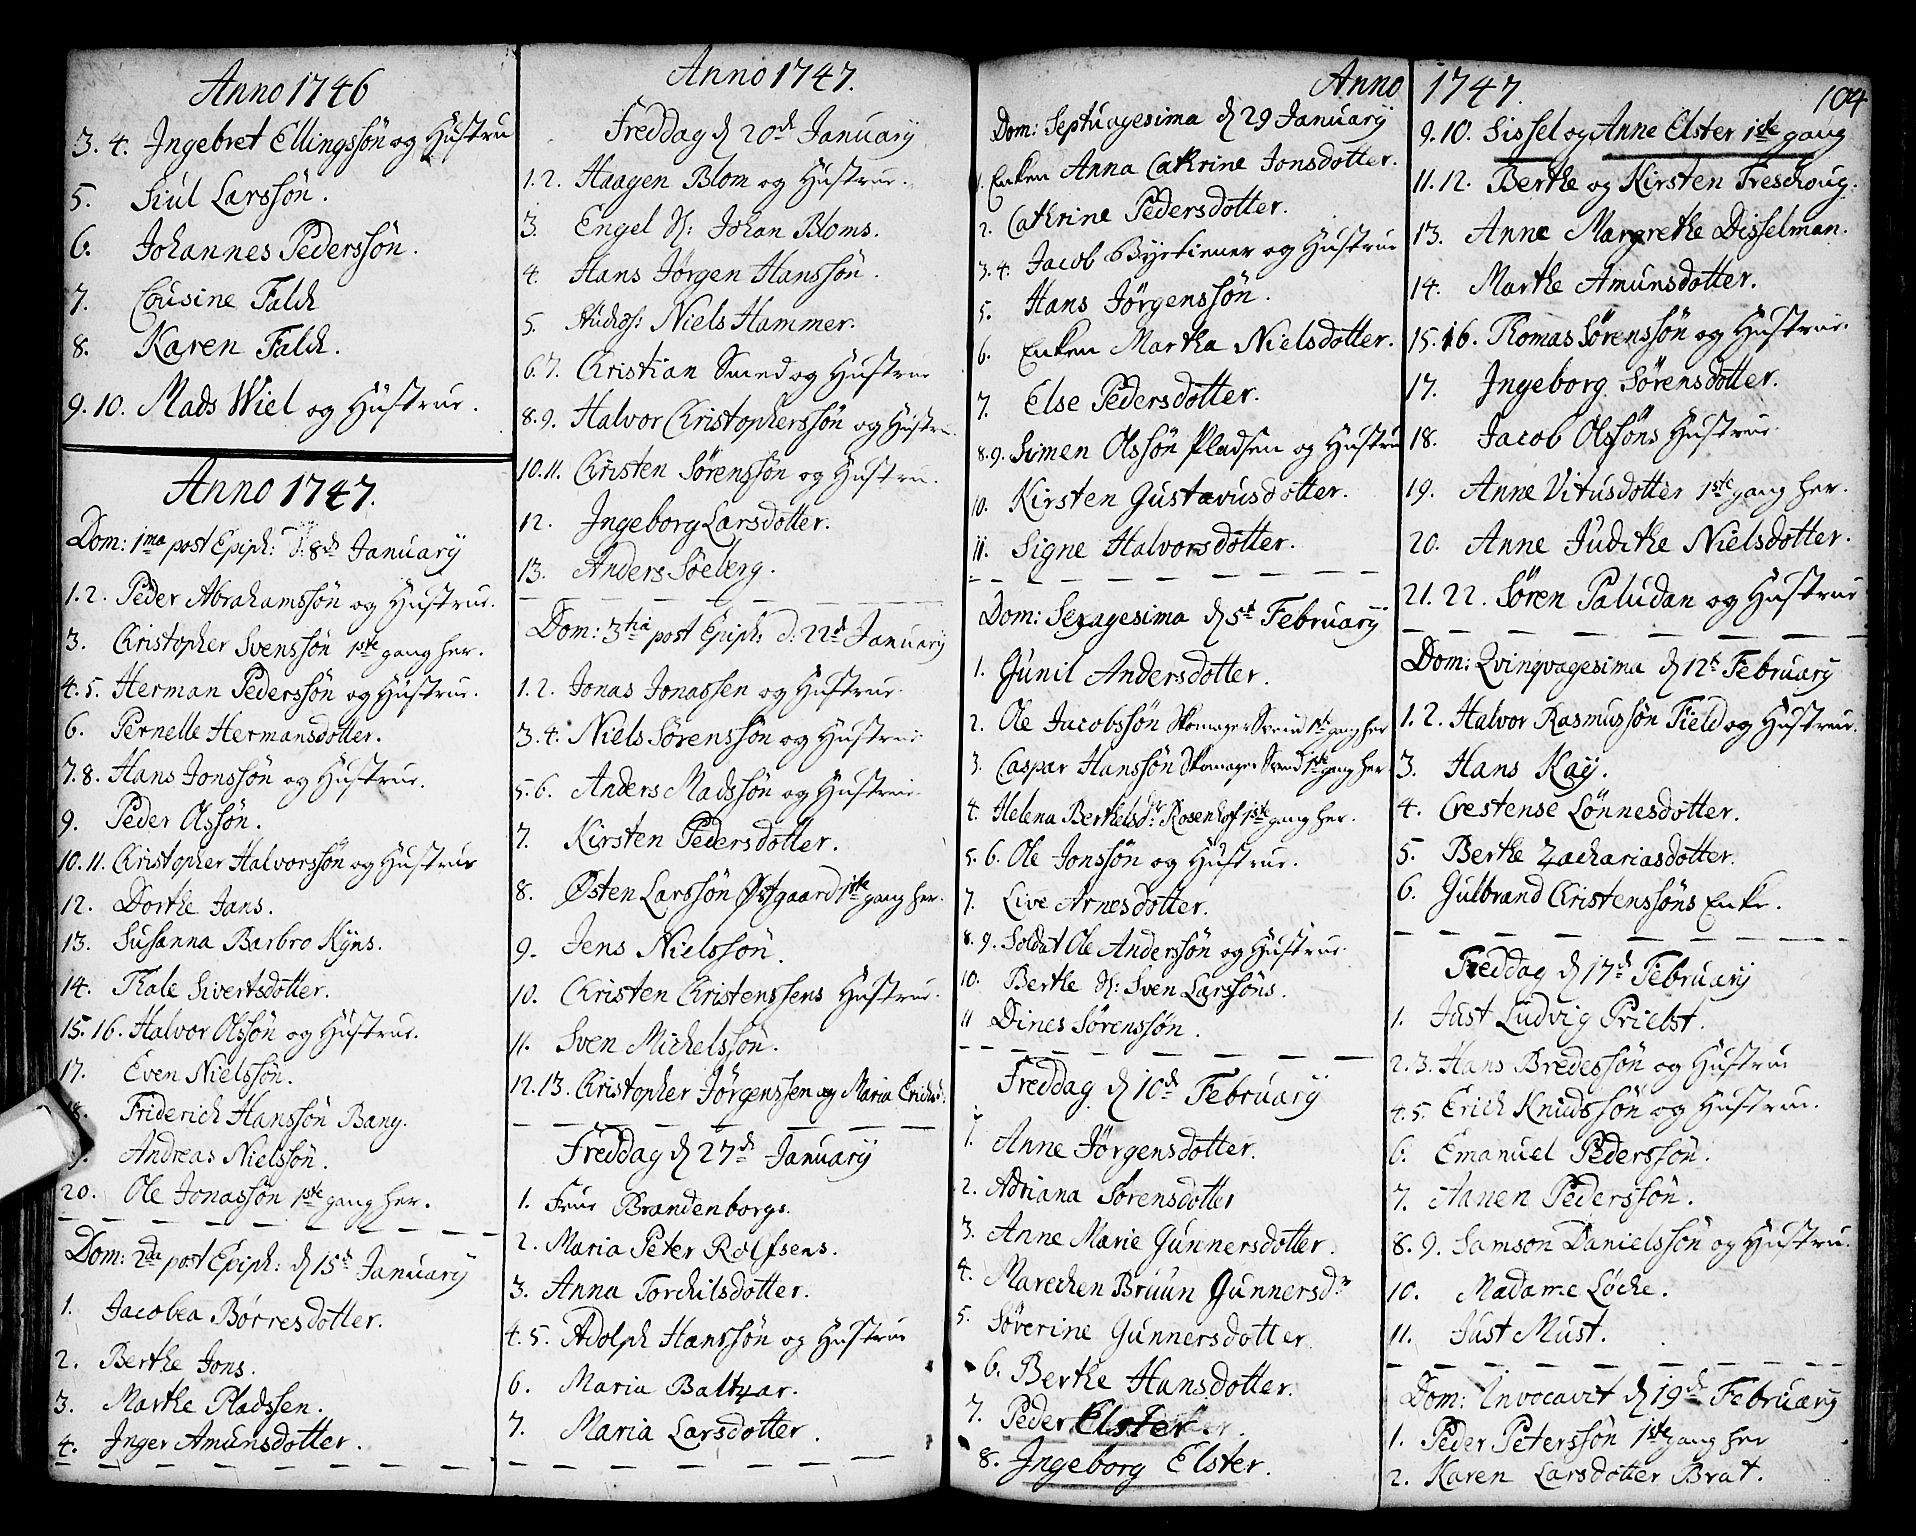 Anno 1746
3. 4. Ingebret Ellingssön og Hustru
5. Siul Larssön.
6. Johannes Pederssön.
7. Cousine Falch
8. Karen Falch.
9. 10. Mads Wiel og Hustrue.
Anno 1747.
Dom: 1ma post Epiph: d. 8de January
1. 2. Peder Abrahamssön og Hustrue.
3. Christopher Svenssön 1ste gang her.
4. 5. Herman Pederssön og Hustrue.
6. Pernelle Hermansdotter.
7. 8. Hans Jonssön og Hustrue.
9. Peder Olssön.
10. 11. Christopher Halvorssön og Hustrue
12. Dorthe Jans.
13. Susanna Barbro Kyns.
14. Thale Sivertsdotter.
15. 16. Halvor Olssön og Hustrue.
17. Even Nielssön.
18. Friderich Hanssön Bang.
19. Andreas Nielssön.
20. Ole Jonassön 1ste gang her.
Dom: 2da post Epiph: d 15de January
1. Jacobea Börresdotter.
2. Berthe Jons.
3. Marthe Pladssen.
4. Inger Amunsdotter.
Anno 1747.
Freddag d 20de January
1. 2. Haagen Blom og Hustrue.
3. Engel S: Johan Bloms.
4. Hans Jörgen Hanssön.
5. Niels Hammer.
6. 7. Christian Smed og Hustrue
8. 9. Halvor Christopherssön og Hustru.
10. 11. Christen Sörenssön og Hustru.
12. Ingeborg Larsdotter.
13. Anders Soelerg.
Dom: 3tia post Epiph: d: 22de January
1. 2. Jonas Jonassen og Hustrue.
3. 4. Niels Sörenssön og Hustrue
5. 6. Anders Madssön og Hustrue.
7. Kirsten Pedersdotter.
8. Østen Larssön Østgaard 1ste gang her.
9. Jens Nielssön.
10. Christen Christenssens Hustrue.
11. Sven Michelssön.
12. 13. Christopher Jörgenssen og Maria Erichsd:
Freddag d 27de January
1. Frue Brandenborgs.
2. Maria Peter Rolfsens.
3. Anna Torchilsdotter.
4. 5. Adolph Hanssön og Hustrue
6. Maria Baltzar.
7. Maria Larsdotter.
Anno 1747. 104
Dom: Septuagesima d 29 January
1. Enken Anna Cathrine Jonsdotter.
2. Cathrine Pedersdotter.
3. 4. Jacob Byetiener og Hustrue
5. Hans Jörgenssön.
6. Enken Martha Nielsdotter.
7. Else Pedersdotter.
8. 9. Simen Olssön Pladsen og Hustru
10. Kirsten Gustavusdotter.
11. Signe Halvorsdotter.
Dom: Sexagesima d 5te February
1. Gunil Andersdotter.
2. Ole Jacobssön Skomager Svend 1ste gang her
3. Caspar Hanssön Skomager Svend 1ste gang her
4. Helena Berthelsdr: Rosenhof 1ste gang her.
5. 6. Ole Jonssön og Hustrue.
7. Live Arnesdotter.
8. 9. Soldat Ole Anderssön og Hustrue.
10. Berthe S: Sven Larssöns.
11 Dines Sörenssön.
Freddag d 10de February
1. Anne Jörgensdotter.
2. Adriana Sörensdotter
3. Anne Marie Gunnersdotter.
4. Marechen Bruun Gunnersdr
5. Söverine Gunnersdotter
6. Berthe Hansdotter.
7. Peder Elster
8. Ingeborg Elster.
9. 10. Sissel og Anne Elster 1ste gang
11. 12. Berthe og Kirsten Treschoug.
13. Anne Margrethe Disselman.
14. Marthe Amunsdotter.
15. 16. Thomas Sörenssön og Hustrue.
17. Ingeborg Sörensdotter.
18. Jacob Olssöns Hustrue
19. Anne Vitusdotter 1ste gang her.
20. Anne Judithe Nielsdotter.
21. 22. Sören Paludan og Hustrue
Dom: Qvinqvagesima d 12te February
1. 2. Halvor Rasmussön Field og Hustrue.
3. Hans Kay.
4. Crestense Lönnesdotter.
5. Berthe Zachariasdotter.
6. Gulbrand Christenssöns Enke.
Freddag d 17de February
1. Just Ludvig Priebst.
2. 3. Hans Bredessön og Hustrue
4. 5. Erich Knudssön og Hustrue.
6. Emanuel Pederssön.
7. Aanen Pederssön.
8. 9. Samson Danielssön og Hustru.
10. Madame Löche.
11. Just Must.
Dom: Invocavit d 19de February
1. Peder Peterssön 1ste gang her
2. Karen Larsdotter Brat.